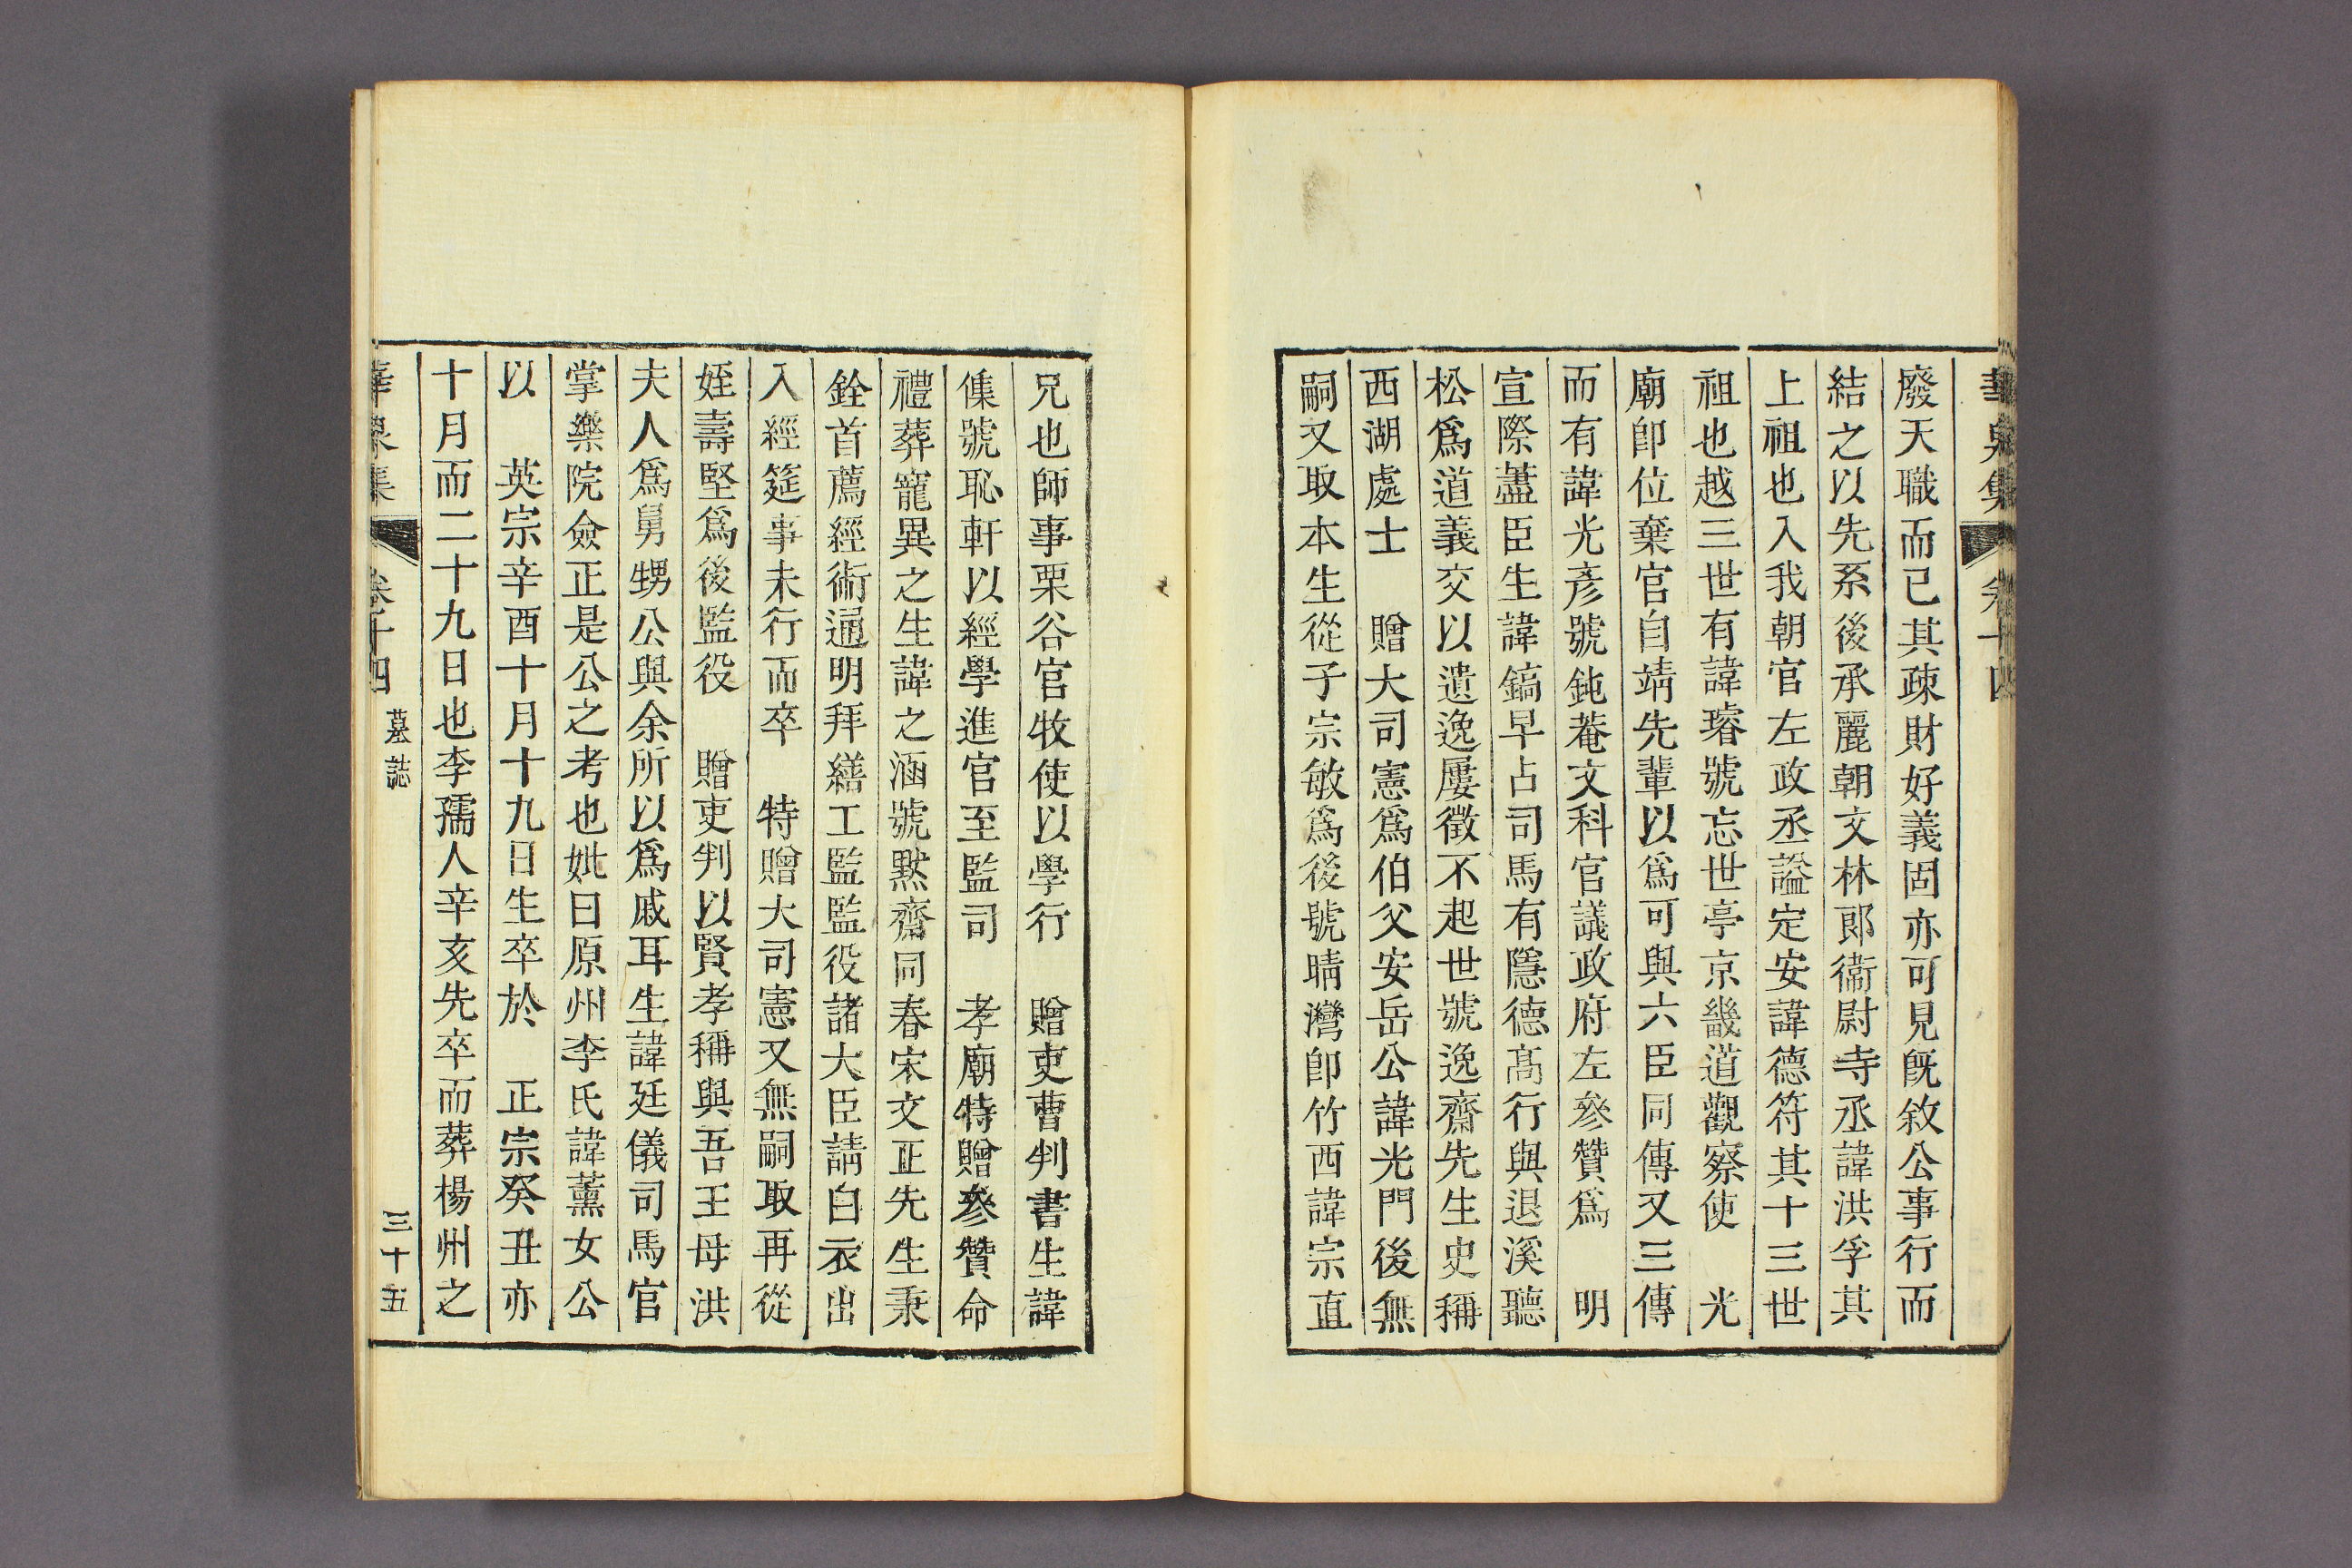 華泉集 卷十四
廢天職而已其疎財好義固亦可見旣敘公事行而
結之以先系後承麗朝文林郞衞尉寺丞諱洪孚其
上祖也入我朝官左政丞謚定安諱德符其十三世
祖也越三世有諱璿號忘世亭京畿道觀察使　光
廟卽位棄官自靖先輩以爲可與六臣同傳又三傳
而有諱光彥號鈍菴文科官議政府左參贊爲　明
宣際藎臣生諱鎬早占司馬有隱德高行與退溪聽
松爲道義交以遺逸屢徵不起世號逸齋先生史稱
西湖處士　贈大司憲爲伯父安岳公諱光門後無
嗣又取本生從子宗敏爲後號晴灣卽竹西諱宗直
兄也師事栗谷官牧使以學行　贈吏曹判書生諱
㒒號恥軒以經學進官至監司　孝廟特贈參贊命
禮葬寵異之生諱之涵號默齋同春宋文正先生秉
銓首薦經術通明拜繕工監監役諸大臣請白衣出
入經筵事未行而卒　特贈大司憲又無嗣取再從
姪壽堅爲後監役　贈吏判以賢孝稱與吾王母洪
夫人爲舅甥公與余所以爲戚耳生諱廷儀司馬官
掌樂院僉正是公之考也妣曰原州李氏諱薰女公
以　英宗辛酉十月十九日生卒於　正宗癸丑亦
十月而二十九日也李孺人辛亥先卒而葬楊州之
華泉集 卷十四 墓誌 三十五